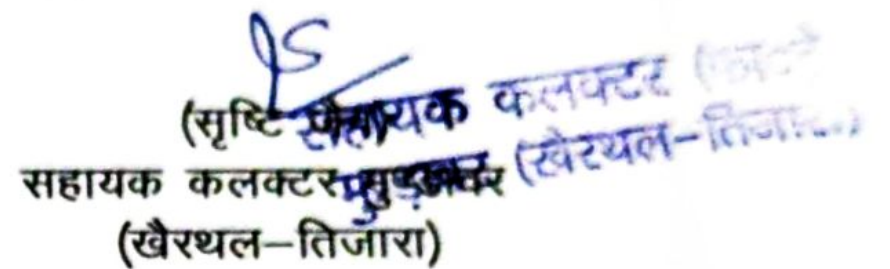 (सृष्टि जैन)
सहायक कलक्टर मुण्डावर
(खैरथल–तिजारा)
सहायक कलक्टर
(खैरथल-तिजारा)